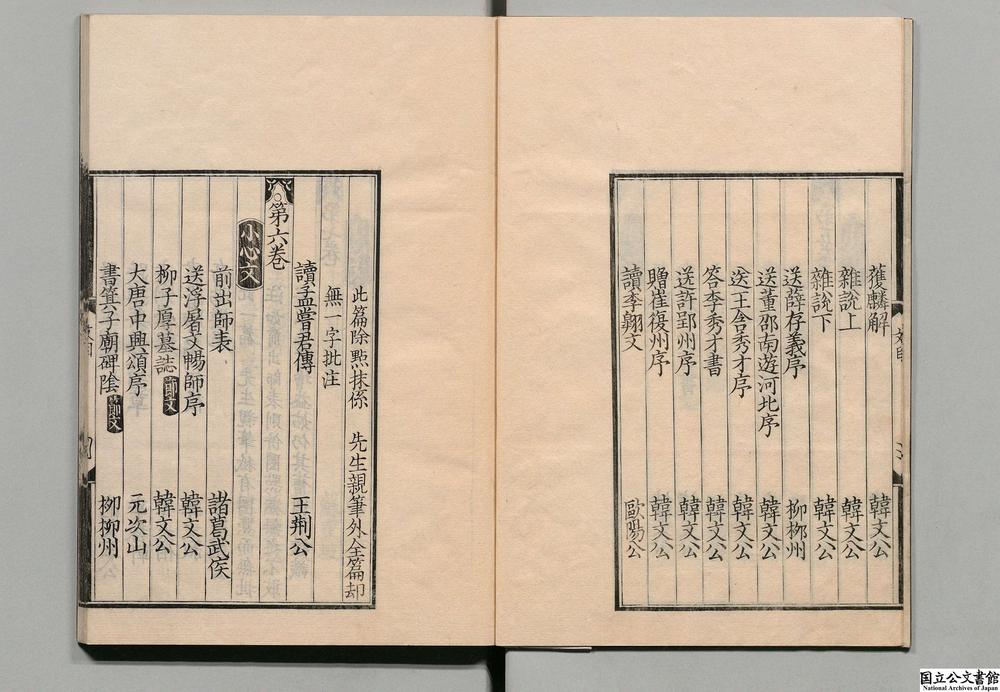 獲麟解　韓文公
雜說上　韓文公
雜說下　韓文公
送薛存義序　柳柳州
送董邵南遊河北序　韓文公
送王含秀才序　韓文公
答李秀才書　韓文公
送許郢州序　韓文公
贈崔復州序　韓文公
讀李翺文　歐陽公
此篇除點抹係　先生親筆外全篇却
無一字批注
讀孟嘗君傳　王荆公
第六卷
小心文
前出師表　諸葛武侯
送浮屠文暢師序　韓文公
柳子厚墓誌　節文　韓文公
大唐中興頌序　元次山
書箕子廟碑陰　節文　柳柳州
国立公文書館
National Archives of Japan